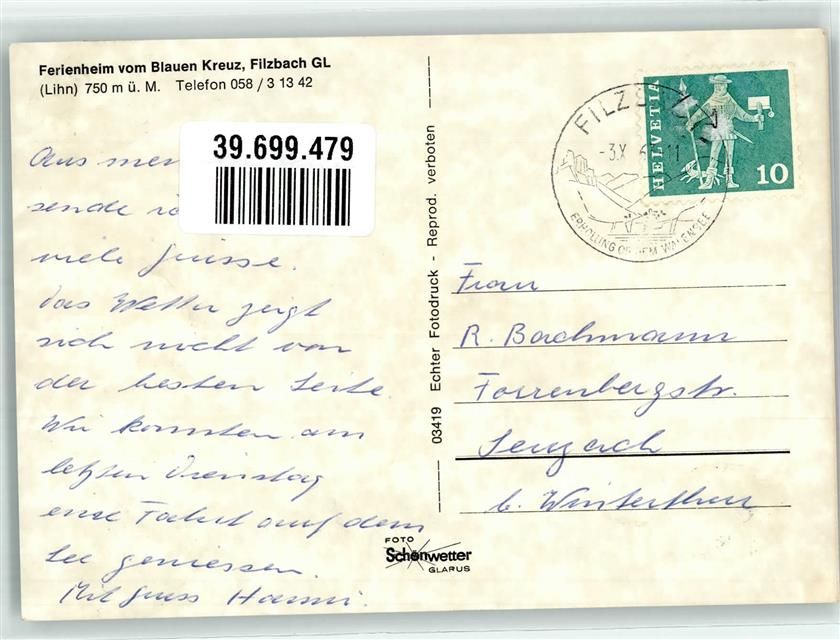 Ferienheim vom Blauen Kreuz, Filzbach GL
(Lihn) 750 m ü. M. Telefon 058 / 3 13 42
39.699.479
Aus
sende
viele Grüsse.
Das Wetter zeigt
sich nicht von
der besten Seite.
Wir konnten am
letzten Dienstag
eine Fahrt auf dem
See geniessen.
Mit Gruss Hanni.
03419 Echter Fotodruck - Reprod. verboten
FOTO
Schönwetter
GLARUS
FILZBACH
-3.X
11
ERHOLUNG OB DEM WALENSEE
HELVETIA
10
Frau
R. Bachmann
Forrenbergstr.
Seuzach
b. Winterthur